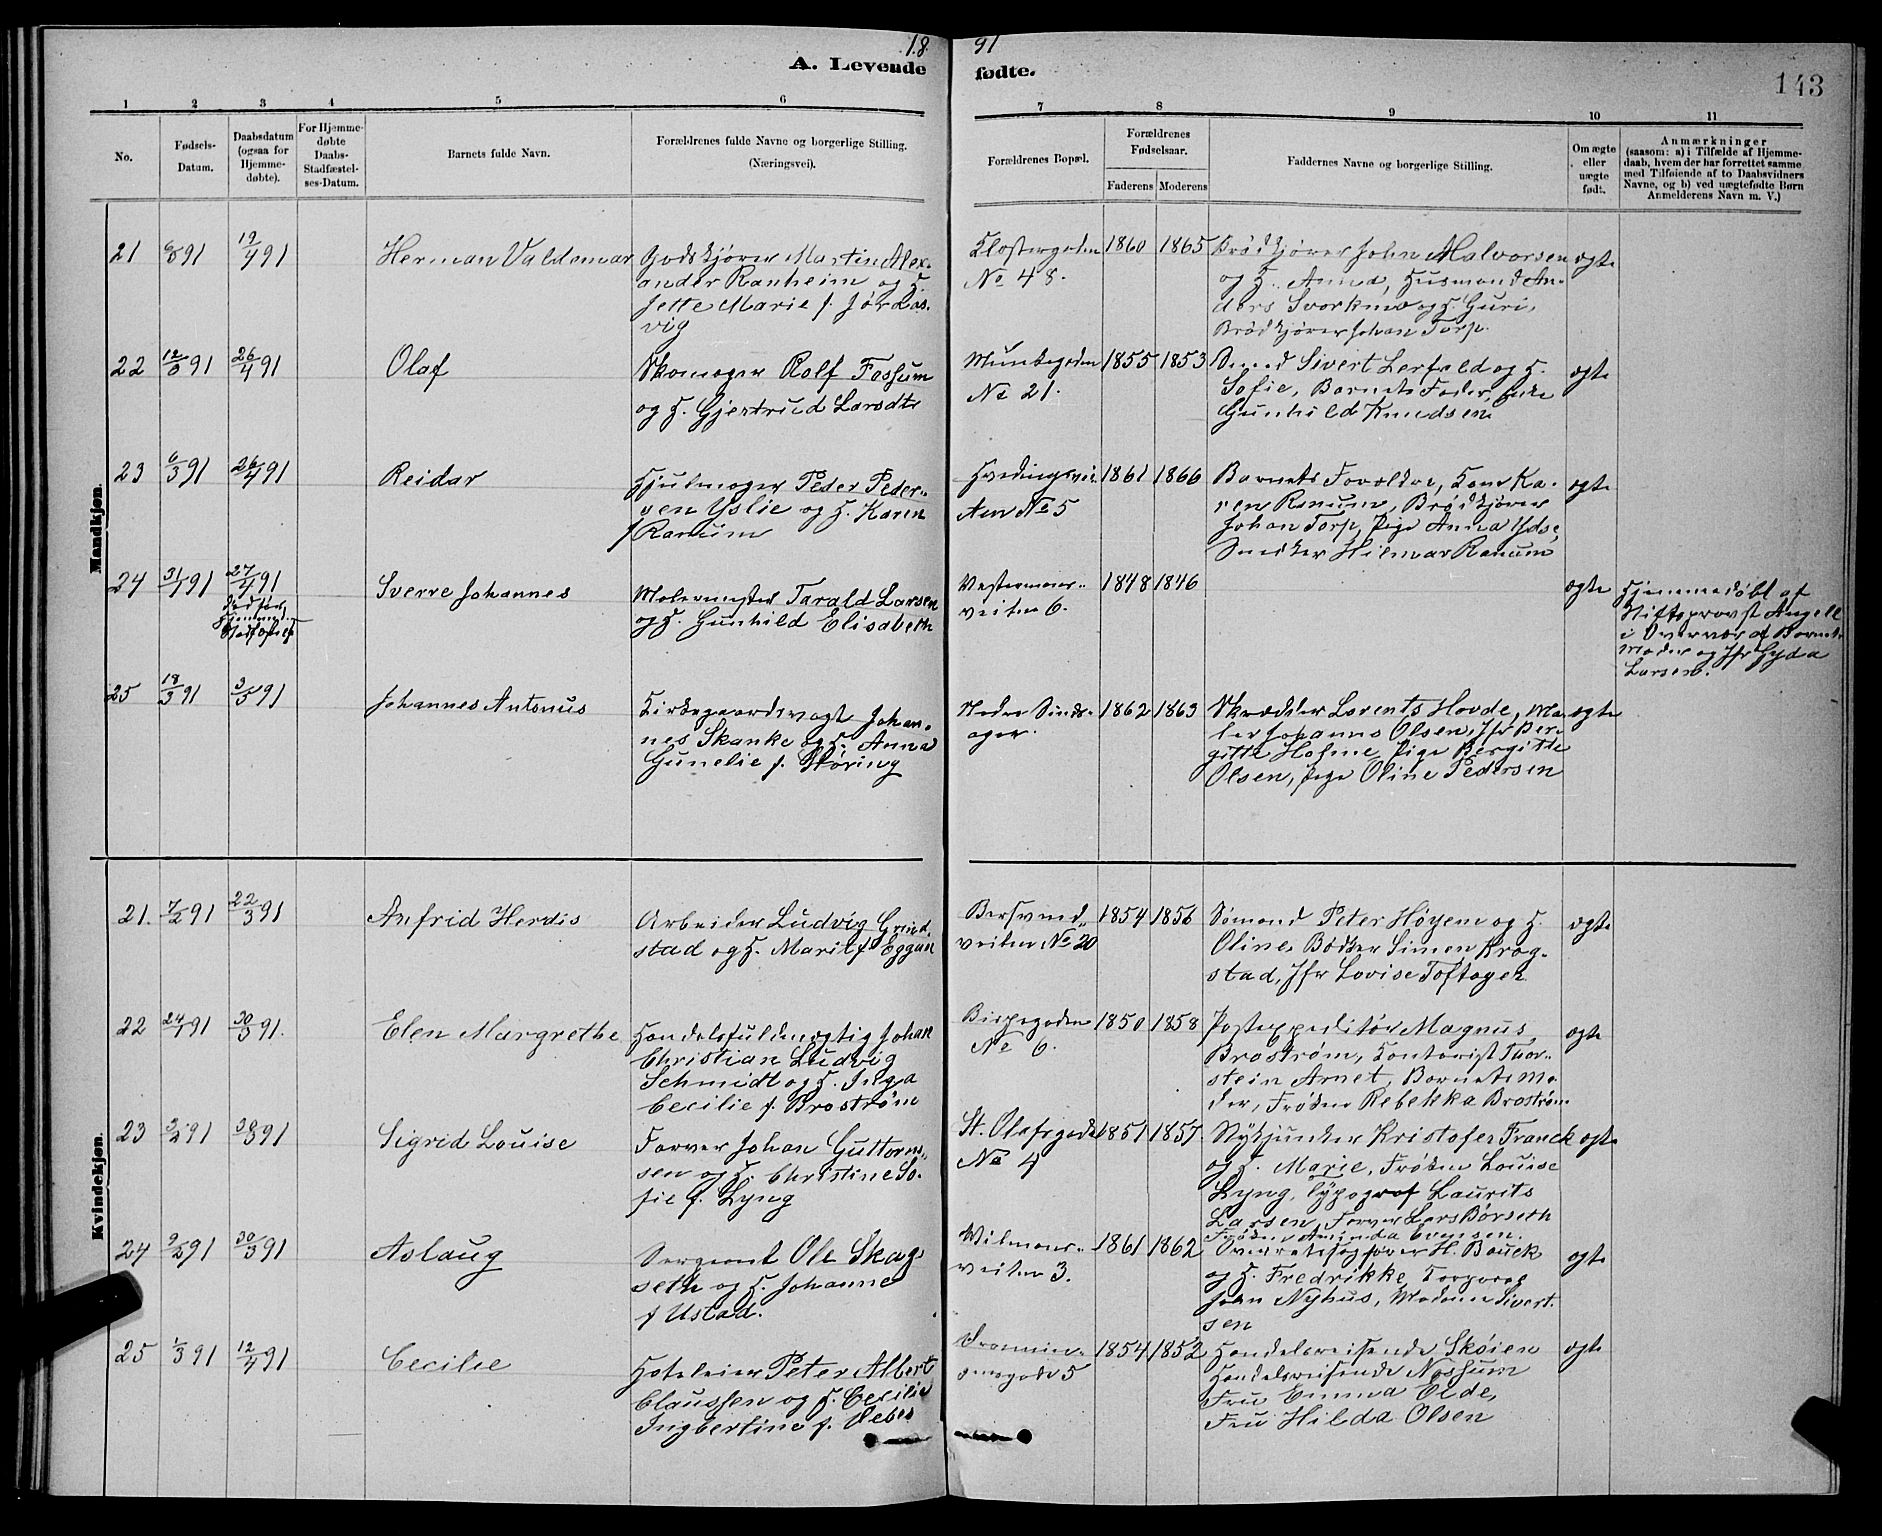 18
91
A. Levende
fødte.
143
1 2 3 4 5 6
7 8 9 10 11
No.
Fødsels-
Datum.
Daabsdatum
(ogsaa for
Hjemme-
døbte).
For Hjemme-
døbte
Daabs-
Stadfæstel-
ses-Datum.
Barnets fulde Navn.
Forældrenes fulde Navne og borgerlige Stilling.
(Næringsvei).
Forældrenes Bopæl.
Forældrenes
Fødselsaar.
Faderens
Moderens
Faddernes Navne og borgerlige Stilling.
Om ægte
eller
uægte
født.
Anmærkninger
(saasom: a) i Tilfælde af Hjemme-
daab, hvem der har forrettet samme
med Tilføiende af to Daabsvidners
Navne, og b) ved uægtefødte Børn
Anmelderens Navn m. V.)
Mandkjøn.
21 91 19/4 91
Herman Valdemar
Godskjører Martin Alex-
ander Ranheim og H.
Jette Marie f. Jørdas-
vig
Klostergaden
No 48.
1860 1865
Brødkjører John Malvorsen
og H. Anna, Husmand An-
ders Svorkmo og H. Guri,
Brødkjører Johan Torp.
ægte
22 12/3 91 26/4 91
Olaf
Skomager Rolf Fossum
og H. Gjertrud Larsdtr
Munkegaden
No 21.
1855 1853
Smed Sivert Lerfald og H.
Sofie, Barnets Fader, Enke
Gunhild Knudsen
ægte
23 6/3 91 26/4 91
Reidar
Hjulmager Peder Peder-
sen Yslie og H. Karen
f Ranum
No 5
1861 1866
Barnets Forældre, Kone Ka-
ren Ranum, Brødkjører
Johan Torp, Pige Anna Ydse,
Snedker Hilmar Ranum
ægte
24 31/1 91 27/4 91
Sverre Johannes
Malermester Tarald Larsen
og H. Gunhild Elisabeth
Vestermanns-
veiten 6.
1848 1846
ægte
Hjemmedøbt af
Stiftsprovst Angell
i Overvær af Barnets
Moder og Jfr Gyda
Larsen.
25 18/3 91 3/5 91
Johannes Antonius
Kirkegaardsvagt Johan-
nes Skanke og H. Anna
Gunelie f. Støring
Nedre Sinds-
ager.
1862 1863
Skrædder Lorents Hovde, Ma-
ler Johannes Olsen, Jfr Ber-
gitte Holme, Pige Bergitte
Olsen, Pige Oline Pedersen
ægte
Kvindekjøn.
21. 7/2 91 22/3 91
Anfrid Herdis
Arbeider Ludvig Grind-
stad og H. Marit f Eggan
Bersvend-
veiten No 20
1854 1856
Sømand Peter Høyem og H.
Oline, Bødker Simen Krog-
stad, Jfr Lovise Toftager
ægte
22 24/1 91 30/3 91.
Elen Margrethe
Handelsfuldmægtig Johan
Christian Ludvig
Schmidt og H. Inga
Cecilie f. Brostrøm
Bispegaden
No 6.
1850 1858
Postexpeditør Magnus
Brostrøm, Kontorist Thor-
stein Arnet, Barnets Mo-
der, Frøken Rebekka Brostrøm
ægte
23 3/2 91 30/3 91
Sigrid Louise
Farver Johan Guttorm-
sen og H. Christine So-
fie f. Lyng
St. Olafsgaden
No 4
1851 1857
Stykjunker Kristofer Franck
og H. Marie, Frøken Louise
Lyng, Typograf Laurits
Larsen, Farver Lars Børseth
Frøken Amanda Evensen.
ægte
24 9/2 91 30/3 91
Aslaug
Sergeant Ole Skag-
seth og H. Johanne
f Ustad.
Wilmans-
veiten 3.
1861 1862
Overretssagfører H. Bauck
og H. Fredrikke, Korporal
John Nyhus, Madam Sivert-
sen
ægte
25 1/3 91 12/4 91
Cecilie
Hoteleier Peter Albert
Claussen og H. Cecilie
Ingbertine f.
Dronnin-
gensgade 5
1854 1852
Handelsreisende Skøien
Handelsreisende Nossum
Fru Emma Elde,
Fru Hilda Olsen
ægte